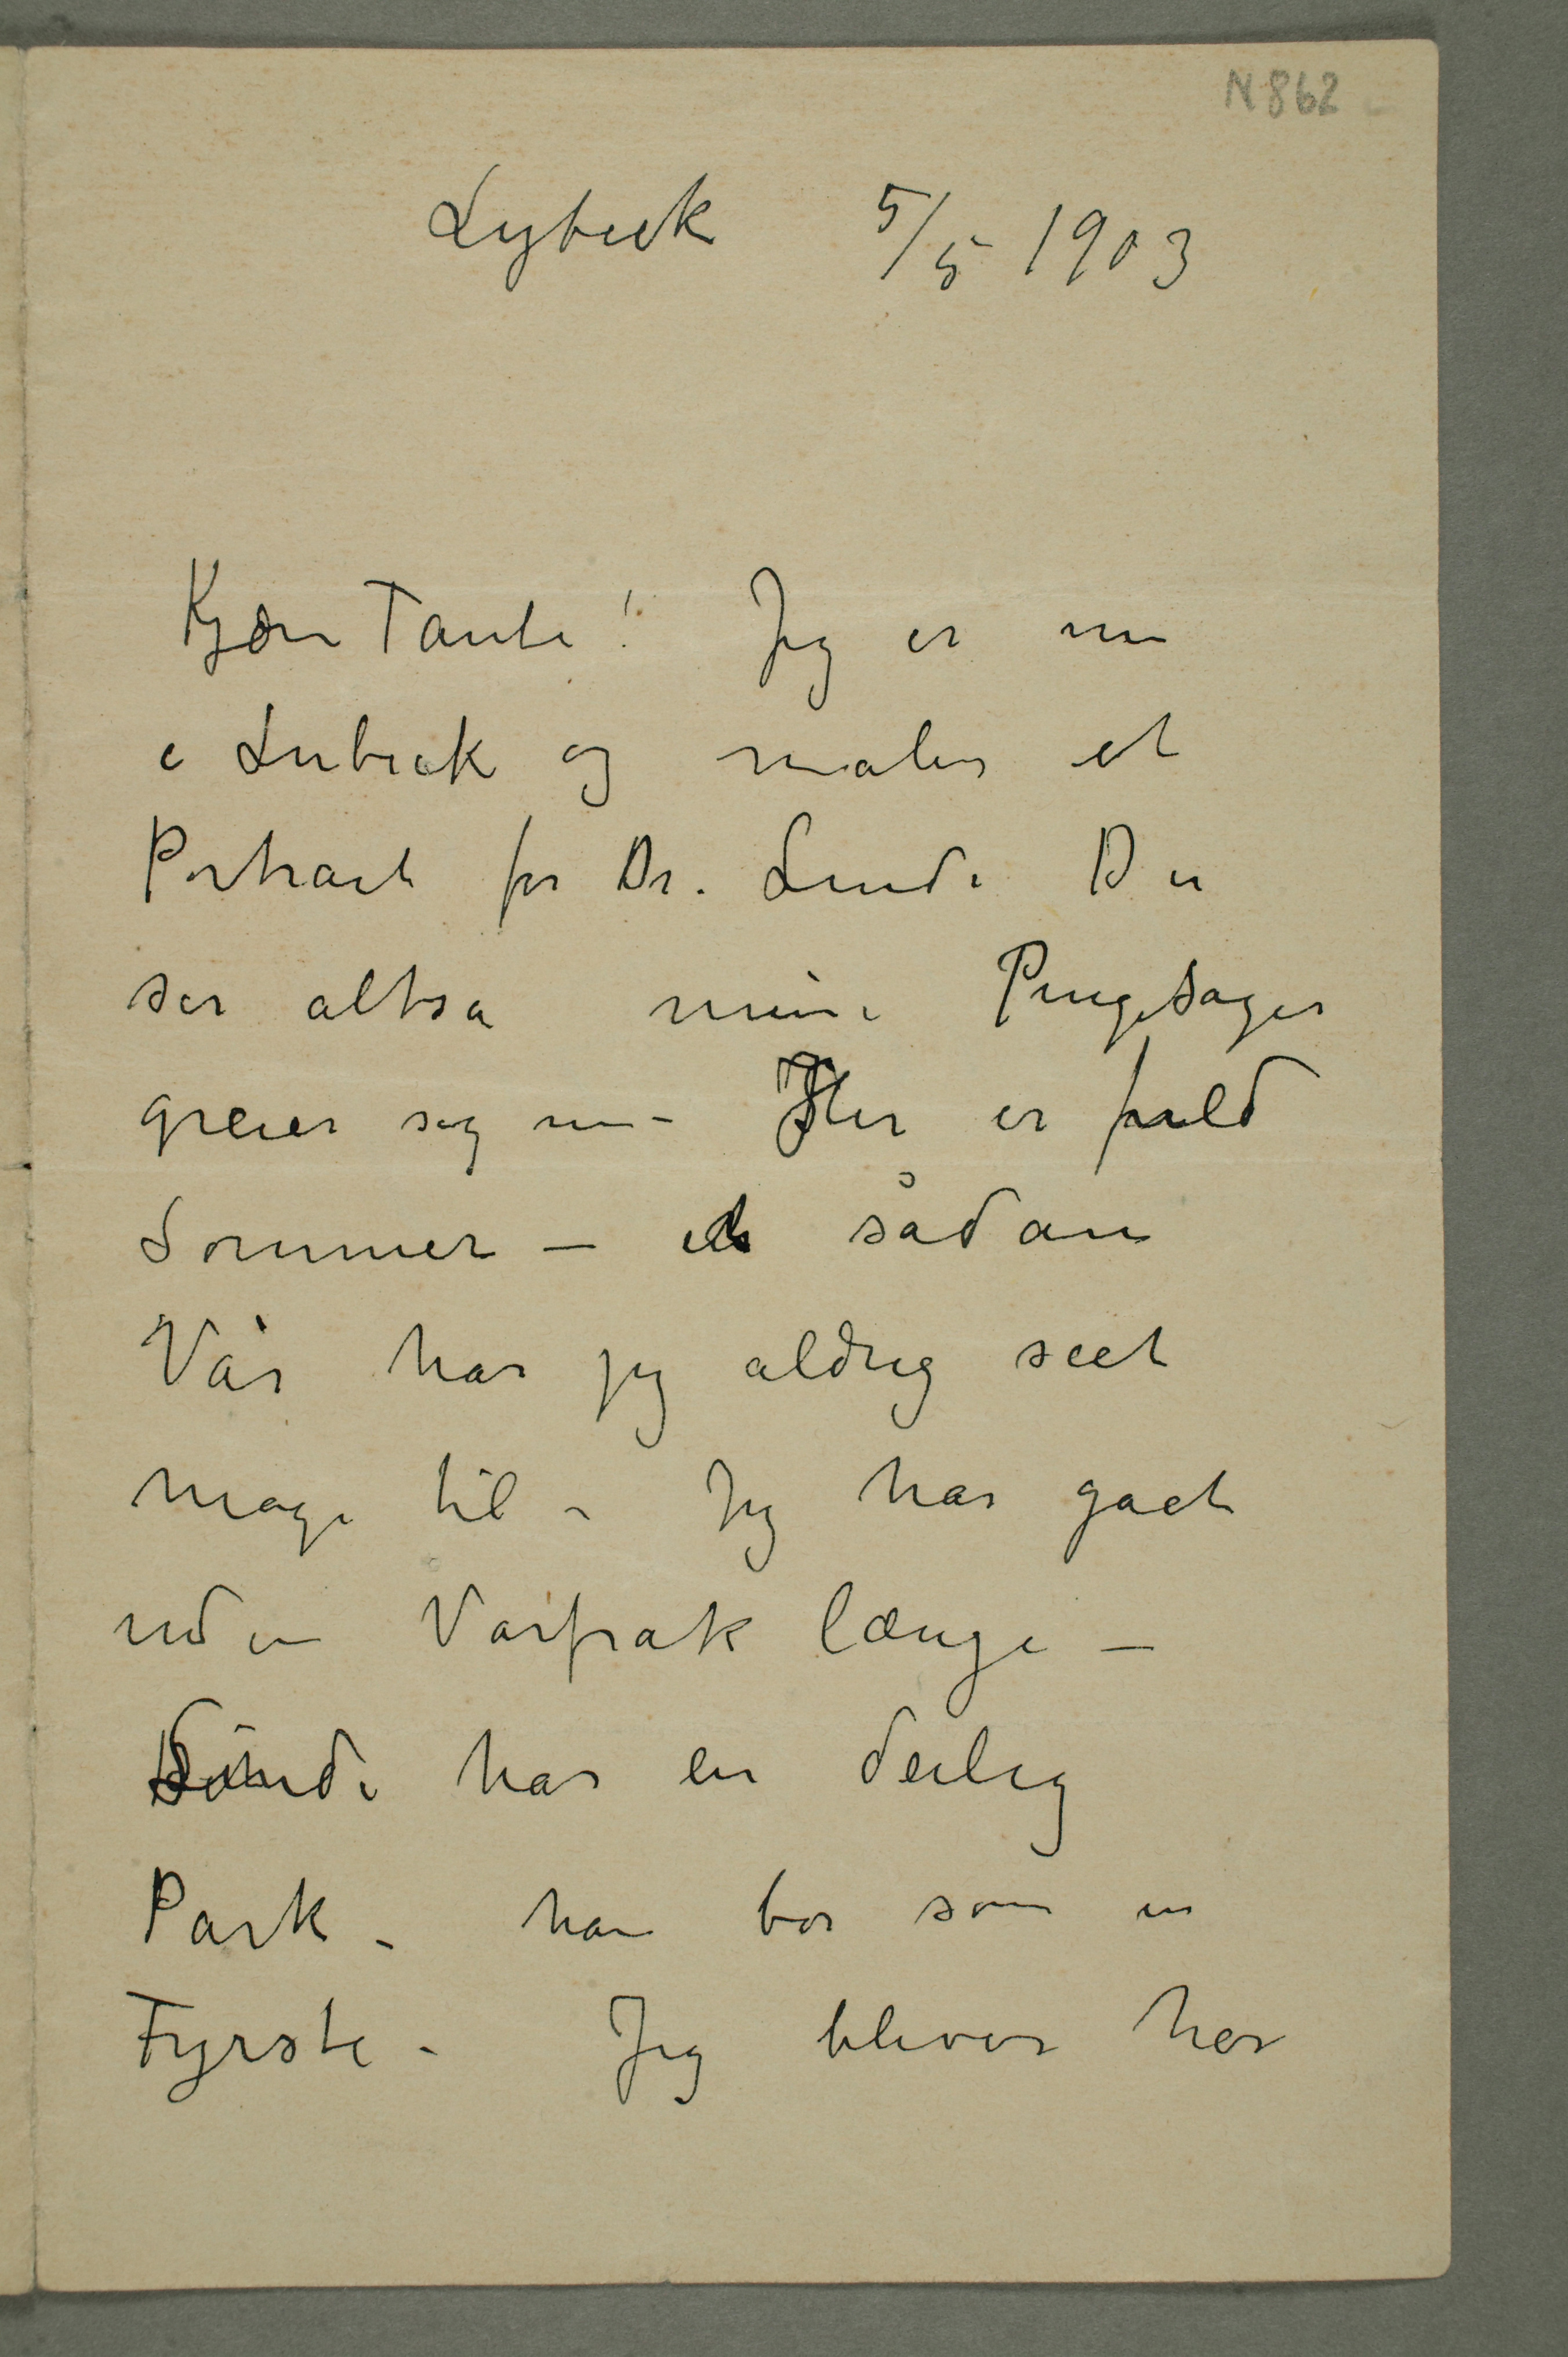 N 862
Lybeck 5/5 1903
Kjære Tante! Jeg er nu
i Lubeck og maler et
Portræt for Dr. Linde Du
ser altsa mine Pengesager
greier sig nu – Her er fuld
Sommer – en sådan
Vår har jeg aldrig seet
mage til – Jeg har gaet
uden Varfrak længe –
Linde har en deilig
Park – han bor som en
Fyrste – Jeg bliver her